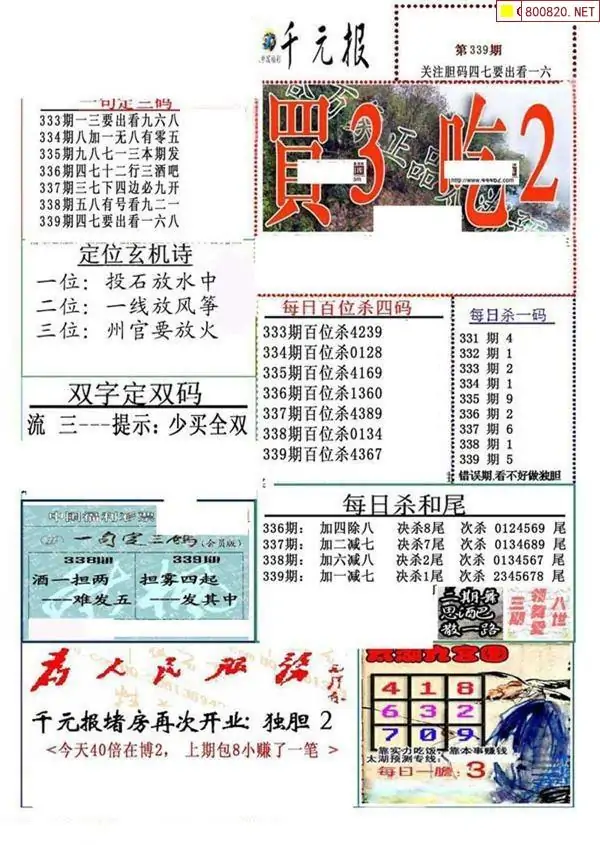 800820.NET
千元报
第339期
关注胆码四七要出看一六
一句定三码
333期一三要出看九六八
334期八加一无八有零五
335期九八七一三本期发
336期四七十二行三酒吧
337期三七下四边必九开
338期五八有号看九二一
339期四七要出看一六八
買3 吃2
定位玄机诗
一位：投石放水中
二位：一线放风筝
三位：州官要放火
每日百位杀四码
333期百位杀4239
334期百位杀0128
335期百位杀4169
336期百位杀1360
337期百位杀4389
338期百位杀0134
339期百位杀4367
每日杀一码
331 期 4
332 期 1
333 期 2
334 期 1
335 期 9
336 期 2
337 期 6
338 期 1
339 期 5
错误期,看不好做独胆
双字定双码
流 三---提示：少买全双
每日杀和尾
336期： 加四除八 决杀8尾 次杀 0124569 尾
337期： 加二减七 决杀7尾 次杀 0134689 尾
338期： 加六减八 决杀2尾 次杀 0134567 尾
339期： 加一减七 决杀1尾 次杀 2345678 尾
中国福利彩票
一句定三码(会员版)
338期 339期
酒一担两 担雾四起
---难发五 ---发其中
为人民服务
千元报堵房再次开业: 独胆 2
<今天40倍在博2， 上期包8小赚了一笔 >
4 1 8
6 3 2
7 0 9
靠实力吃饭，靠本事赚钱
太湖预测专线:
每日一胆: 3